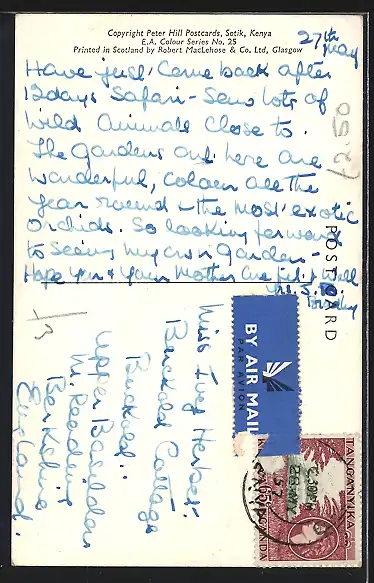 Copyright Peter Hill Postcards, Sotik, Kenya
E.A. Colour Series No. 25
Printed in Scotland by Robert MacLehose & Co. Ltd, Glasgow
27th May
Have just Come back after
12 days Safari - Saw lots of
Wild Animals Close to.
The Gardens out here are
Wonderful, Colour all the
Year round & the most exotic
Orchids. So looking forward
to seeing my own Garden -
Hope you & your Mother are fit & well
POSTCARD
7250
1/3
BY AIR MAIL
PAR AVION
Miss Ivy Herbert.
Buckold Cottage
Buckold.
Upper Basildon
Nr. Reading
Berkshire
England.
TANGANYIKA
KENYA
UGANDA